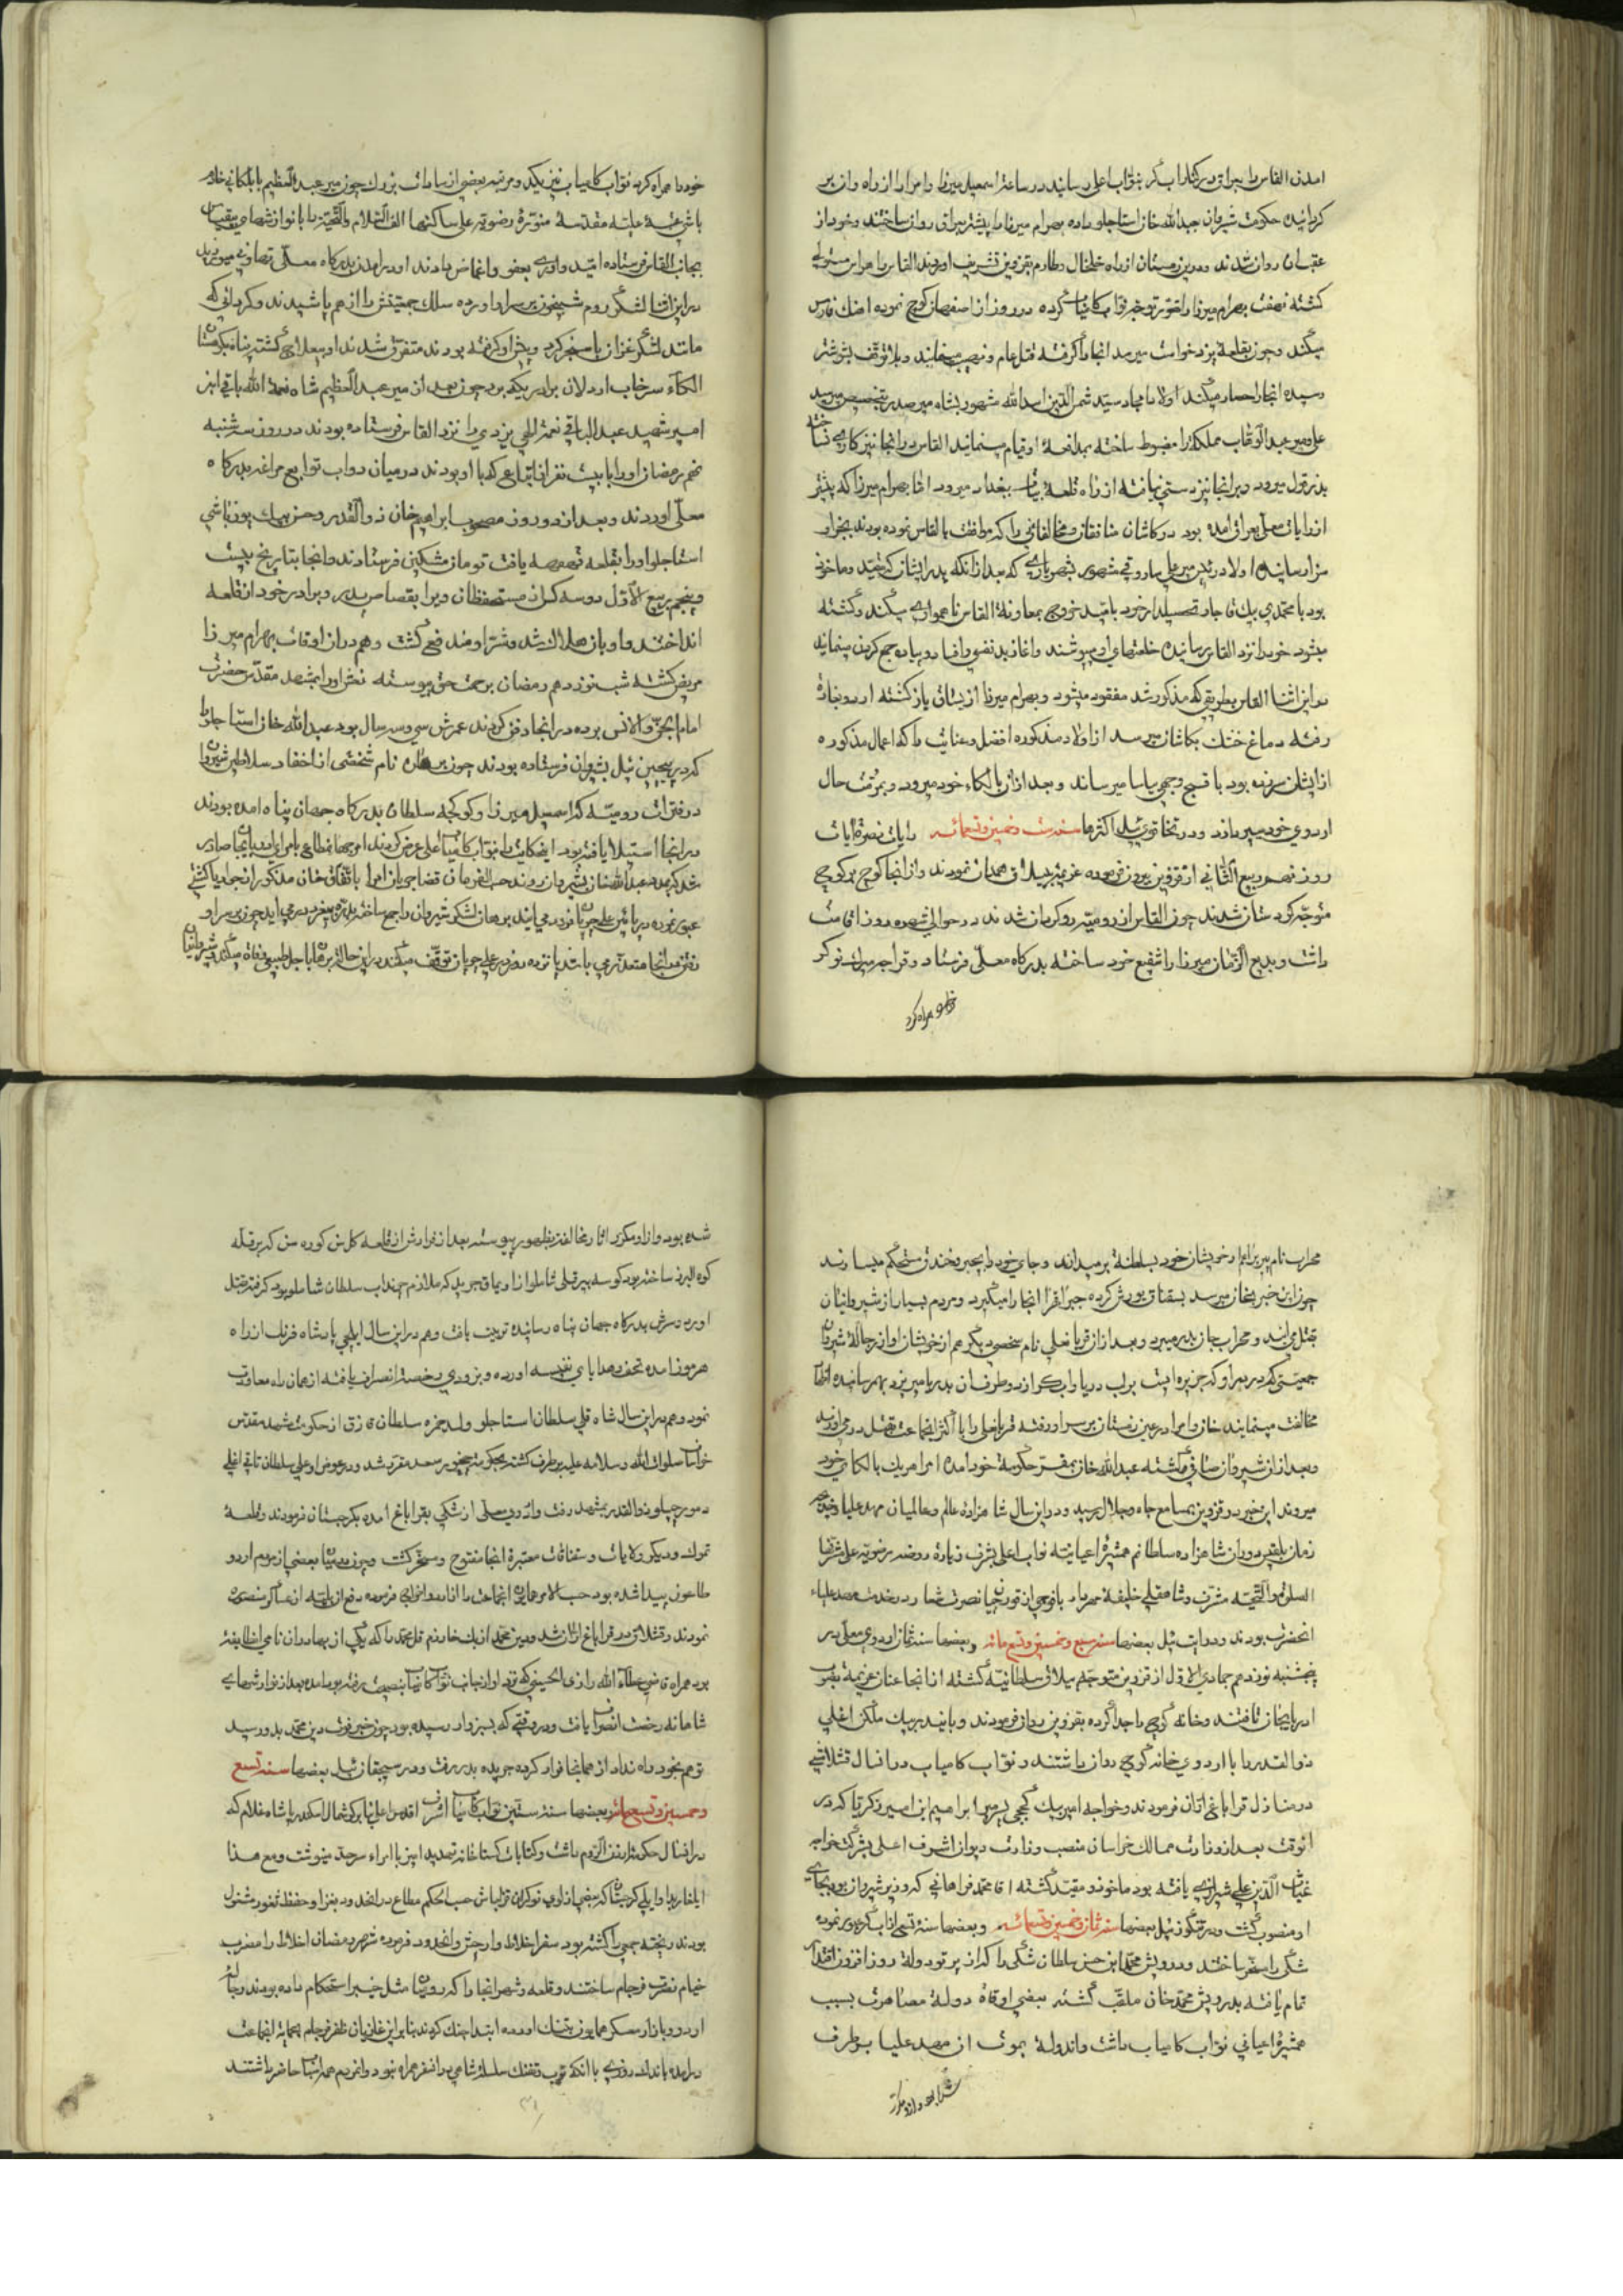 امدن القاس را بعراق در کنار اب کر بنواب اعلی رسانیدند در ساعت اسمعیل میرزا و امرا را از راه وان بر
کردانیده حکومت شیروان بعبدالله خان استاجلو داده بهرام میرزا را پیشتر بعراق روان ساختند و خود از
عقب روان شدند و در زمستان از راه خلخال و طارم بقزوین تشریف اوردند القاس را هراس مستولی
کشته نهضت بهرام میرزا را تصور توجه نواب کامیاب کرده در روز از اصفهان کوچ نموده اهنک فارس
میکند و چون بقلعه یزدخواست میرسد انجا را کرفته قتل عام و نهب مینمایند و بلا توقف بشوشتر
رسیده انجا را حصار میکند اولاد امجاد سید شمس الدین اسدالله مشهور بشاه میر صدر بتخصیص میر سید
علی و میر عبدالوهاب مملکت را مضبوط ساخته بمدافعه او قیام مینمایند القاس در انجا نیز کاری نساخته
بدزفول میرود و بر انجا نیز دستی نیافته از راه قلعه بیات ببغداد میرود اما بهرام میرزا که پیشتر
از رایات معلی بعراق امده بود در کاشان منافقان و مخالفانی را که موافقت با القاس نموده بودند بجزا و
سزا رسانیده اولاد
بود با محمدی بیک قاجار تحصیلدار خود بامید خروج بمعاونة القاس ناهمواری میکند و کشته
میشود خود را نزد القاس رسانیده خلعتهای او میپوشند و اغاز بدنفسی و افساد و پیاده جمع کردن مینمایند
در این اثنا القاس بطریقی که مذکور شد مفقود میشود و بهرام میرزا از ییلاق باز کشته اردو بتازه
رفته دماغ خشک بکاشان میرسد از اولاد مذکوره افضل و عنایت را که اعمال مذکوره
از ایشان سر زده بود با قبیح وجهی بیاسا میرساند و بعد از ان بالکاء خود میرود و بمرمت حال
اردوی خود میپردازد و در تخاقوی ئیل اکثرها سنه ست و خمسین و تسعمائه رایات نصرة ایات
روز نهم ربیع الثانی از قزوین بیرون فرموده عزیمة ییلاق همدان نمودند و از انجا کوچ بر کوچ
متوجه کردستان شدند چون القاس از رومیه رو کردان شد در حوالی شهره روز اقامت
داشت و بدیع الزمان میرزا را شفیع خود ساخته بدرکاه معلی فرستاد و قرا جبرییل نوکر
خود را همراه کرد
خود را همراه کرد نواب کامیاب نیز یکد و مرتبه بعضی از سادات بزرک چون میر عبدالعظیم بابلکانی خادم
باشی عتبه علیه مقدسه منوره رضویه علی ساکنها الف السلام والتحیة را با نوازشهای بیقیاس
بجانب القاس فرستاده امید واری بعفو و اغماض دادند او در امدن بدرکاه معلی تهاون میورزید
در این اثنا لشکر روم شبیخون بر سر او اورده سلک جمعیتش را از هم پاشیدند و کردانی که
مانند لشکر غزان باسنجر کرد ویخرا و کرفته بودند متفرق شدند او بیعلاج کشته پناه بکردستان
الکاء سرخاب اردلان برادر بیکه برد چون بعد از میر عبدالعظیم شاه نعمة الله باقی ابن
امیر شهید عبدالباقی نعمة اللهی یزدی را نزد القاس فرستاده بودند در روز سه شنبه
نهم رمضان او را با بیست نفر از اتباعی که با او بودند در میان دواب توابع مراغه بدرکاه
معلی اوردند و بعد از دو روز مصحوب ابراهیم خان ذوالقدر و حسن بیک یوزباشی
استاجلو او را بقلعه قهقهه یافت تومان مشکین فرستادند و انجا بتاریخ بیست
و پنجم ربیع الاول دوسه کس از مستحفظان ویرا بقصاص پدر و برادر خود از قلعه
انداختند و او بان هلاک شد و شر او مندفع کشت و هم در ان اوقات بهرام میرزا
مریض کشته شب نوزدهم رمضان برحمت حق پیوسته نعش او را بمشهد مقدس حضرت
امام الجن والانس برده در انجا دفن کردند عمرش سی و سه سال بود عبدالله خان استاجلو را
که در پیچین ئیل بشیروان فرستاده بودند چون برهان نام شخصی از احفاد سلاطین شیروان
در فترات رومیه که اسمعیل میرزا و کوکچه سلطان بدرکاه جهان پناه امده بودند
در انجا استیلا یافته بود اینحکایت را بنواب کامیاب اعلی عرض کردند امر جهانمطاع بامرای صادر
شد که بمدد عبدالله خان بشیروان روند حسب الفرمان قضا جریان امرا باتفاق خان مذکور از جواد با کشتی
عبور نموده در پایش علی چوپان فرود می ایند برهان لشکر شیروان را جمع ساخته بدره پیغمبر در می اید چون بر سر او
رفتن در انجا متعذر می باشد پانزده روز در علی چوپان توقف میکنند در این حالت برهان باجل طبیعی وفاة میکند شیروانیان
محراب نام پیر برا از خویشان خود بسلطنة برمیدارند و جای خود را بجبر و خندق مستحکم میسازند
چون این خبر بخان میرسد بسقناق یورش کرده جبراً قهراً انجا را میکیرد و مردم بسیار از شیروانیان
بقتل می ایند و محراب جان بدر میبرد و بعد از ان قربانعلی نام شخصی دیکر هم از خویشان او از رجاله شیروان
جمعیتی کرده در بعراو که جزیره ایست بر لب دریا و اب کر از دو طرف ان بدریا میریزد بهم رسانیده اظهار
مخالفت مینمایند خان و امرا در عین زمستان بر سر او رفته قربانعلی را با اکثر انجماعت بقتل در می اورند
و بعد از ان شیروان صافی کشته عبدالله خان بمقر حکومة خود امده امرا هر یک بالکاء خود
میروند این خبر در قزوین بمسامع جاه و جلال رسید و در این سال شاهزاده عالم و عالمیان مهد علیا و خدیجه
زمان بلقیس دوران شاهزاده سلطانم همشیره اعیانیه نواب اعلی بشرف زیارة روضه رضویه علی مشرفها
السلام والتحیه مشرف و شاه قلی خلیفه مهردار با فوجی از قورچیان نصرت شعار در خدمت مهد علیاء
انحضرت بودند و در ایت ئیل بعضیها سنه سبع و خمسین و تسع مائه و بعضها سنه ثمان اردوی معلی در
پنجشنبه نوزدهم جمادی الاول از قزوین متوجه ییلاق سلطانیه کشته از انجا عنان عزیمة بصوب
اذربایجان تافتند و خانه کوچ را جدا کرده بقزوین روان فرمودند و بایندر بیک ملکن اغلی
ذوالقدر را با اردوی خانه کوچ روان داشتند و نواب کامیاب در انسال قشلاقشی
در منازل قراباغ اران فرمودند و خواجه امیر بیک کججی پسر میر ابراهیم ابن امیر زکریا که در
انوقت بعد از وزارت ممالک خراسان منصب وزارت دیوان اشرف اعلی بشرکت خواجه
غیاث الدین علی شیرازی یافته بود ماخوذ و مقید کشته اقا محمد فراهانی که وزیر شیروان بود بجای
او منصوب کشت و در تنکوز ئیل بعضیها سنه ثمان و خمسین و تسعمائه و بعضها سنه تسع از اب کر عبور نموده
شکی را مسخر ساختند و درویش محمد ابن حسن سلطان شکی را که از پرتو دولة روز افزون اقتدار
تمام یافته بدرویش محمد خان ملقب کشته بعضی اوقاة دولة مصاهرت بسبب
همشیره اعیانی نواب کامیاب داشت و اندولة بموت ان مهد علیا بر طرف
شده بود و از او مکرر
شده بود و از او مکرر اثار مخالفت بظهور پیوسته بعد از فرارش از قلعه کلاسن کوره سن که بر قله
کوه البرز ساخته بود کوسه پیر قلی شاملو از اویماق جربیلد که ملازم مهنداب سلطان شاملو بود کرفته بقتل
اورد و سرش بدرکاه جهان پناه رسانیده تربیت یافت و هم در این سال ایلچی پادشاه فرنک از راه
هرموز امده تحف و هدایای نفیسه اورده و بزودی رخصة انصراف یافته از همان راه معاودت
نمود و هم در این سال شاه قلی سلطان استاجلو ولد حمزه سلطان قزق از حکومت مشهد مقدس
خراسان صلوات الله و سلامه علیه بر طرف کشته بحکومة چخور سعد مقرر شد و در عوض او علی سلطان تاتی اغلی
دمورچیلو ذوالقدر بمشهد رفت و اردوی معلی از شکی بقراباغ امده بکرجستان فرمودند و قلعه
تموک و دیکر ولایات و سقناقات معتبره انجا مفتوح و مسخر کشت و چون در میان بعضی از مردم اردو
طاعون پیدا شده بود حسب الامر همایون انجماعت را از اردو اخراج فرموده دفع از بلیه از عساکر منصوره
نمودند و قشلاق در قراباغ اران شد و دین محمد ازبک خوارزم قل محمد را که یکی از بهادران نامی انطایفه
بود همراه قاضی عطاء الله رازی الحسینی که نزد او از جانب نواب کامیاب بنصیحة رفته بود امده بعد از نوازشهای
شاهانه رخصت انصراف یافت و در وقتی که بسبزوار رسیده بود چون خبر فوت دین محمد بدو رسید
توهم بخود راه نداد از همانجا فرار کرده جریده بدر رفت و در سیچقان ئیل بعضها سنه تسع
و خمسین و تسعمائه و بعضها سنه ستین نواب کامیاب اشرف اقدس اعلی بنا بر کوشمال اسکندر پاشاه غلام که
در انسال حکومة ارض الروم داشت و کتابات کستاخانه تهدید امیز بامراء سرحد مینوشت و مع هذا
ایلغار بولوایلی کرجستان که بعضی از اوی نوکران قزلباش حسب الحکم مطاع در انحدود بغزا و حفظ ثغور مشغول
بودند ریخته جمعی را کشته بود سفر اخلاط و ارجیش و انحدود فرموده شهر رمضان اخلاط را مضرب
خیام نصرت فرجام ساختند و قلعه و شهر انجا را که رومیان مثل خیبر استحکام داده بودند رجاله
اردو بازار معسکر همایون بتنک اورده ابتدا جنک کردند بنابر این غازیان ظفر فرجام بحمایة انجماعت
در امده باندک روزی با انکه توپ و تفنک سلسله شاهی در انسفر همراه نبود و انمردم همه انها حاضر داشتند